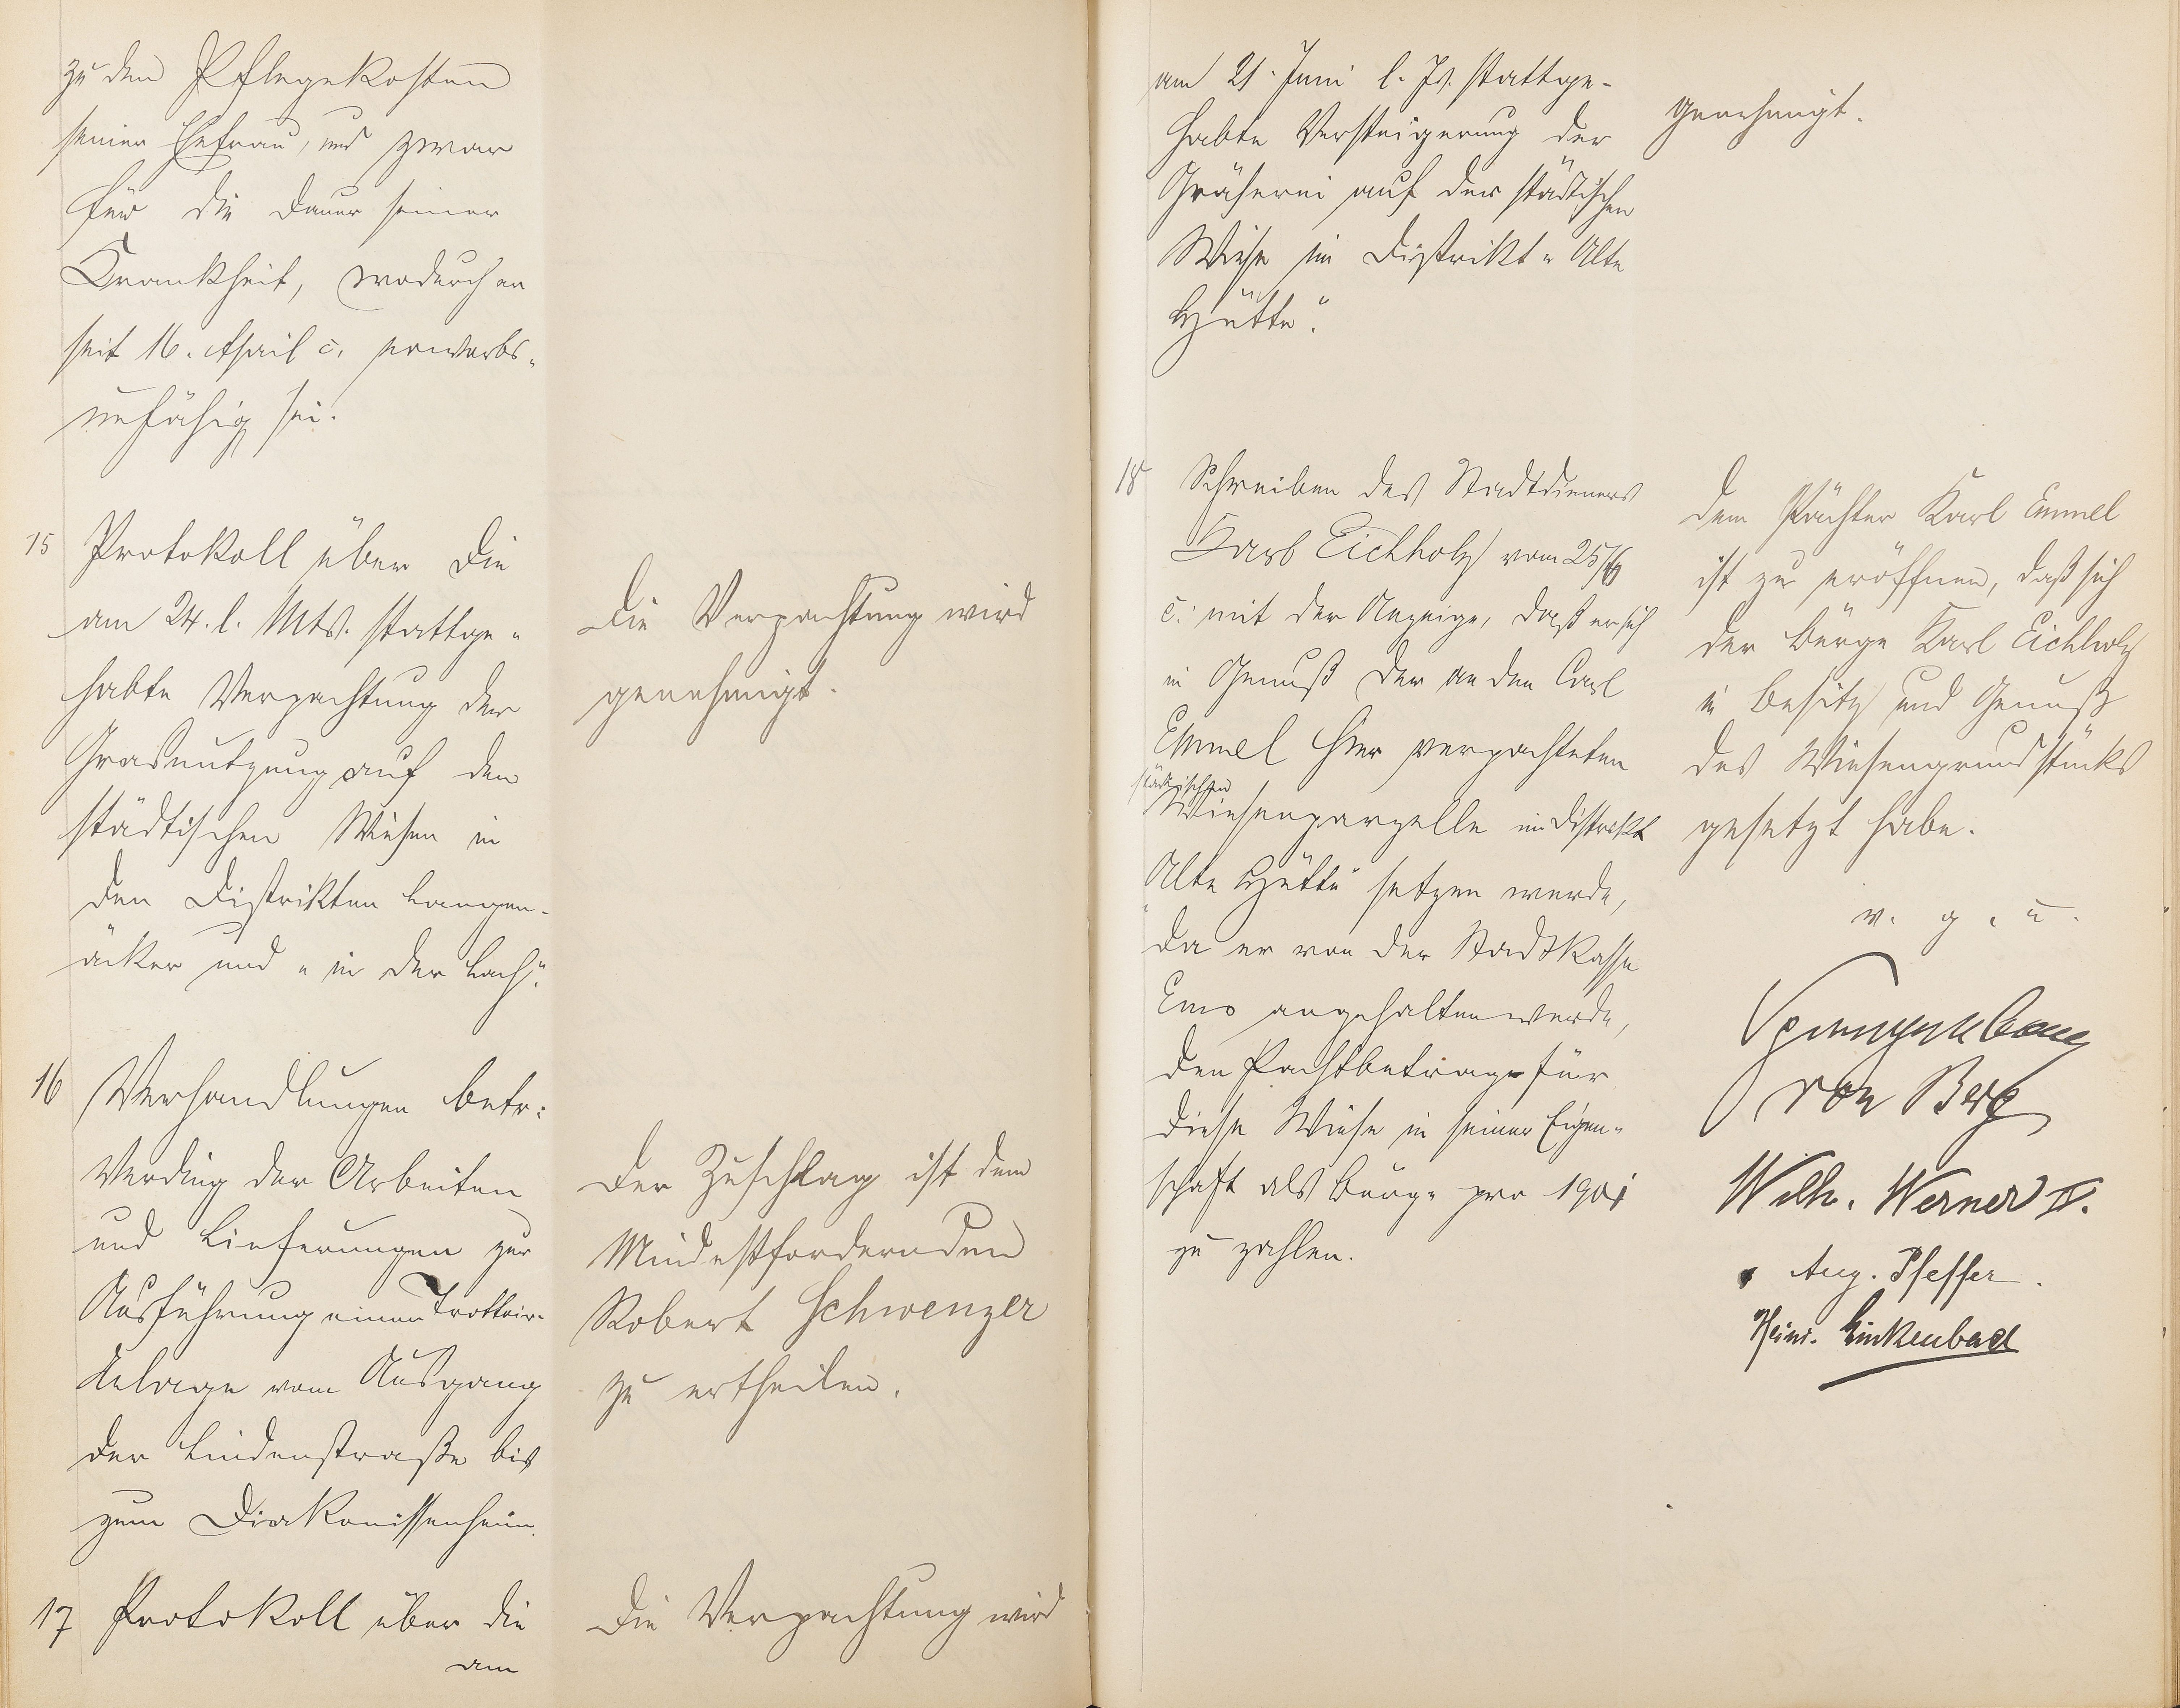 zu den Pflegekosten
seiner Ehefrau, und zwar
für die Dauer seiner
Krankheit, wodurch er
seit 16. April c. erwerbs-
unfähig sei.
15 Protokoll über die
am 24. l. Mts. stattge-
habte Verpachtung der
Grasnutzung auf den
städtischen Wiesen in
den Distrikten Langen-
äcker und „in der Lach“.
Die Verpachtung wird
genehmigt.
16 Verhandlungen betr:
Verding der Arbeiten
und Lieferungen zur
Ausführung einer Trottoir-
Anlage vom Ausgang
der Lindenstraße bis
zum Diakonissenheim.
Der Zuschlag ist dem
Mindestfordernden
Robert Schwenzer
zu ertheilen.
17 Protokoll über die
am
Die Verpachtung wird
am 21. Juni l. Js. stattge-
habte Versteigerung der
Gräserei auf der städtischen
Wiese im Distrikt „Alte
Hütte“.
genehmigt.
18 Schreiben des Stadtdieners
Karl Eichholz vom 25/6
c. mit der Anzeige, daß er sich
in Genuß der an den Carl
Emmel hier verpachteten
städtischen
Wiesenparzelle im Distrikt
„Alte Hütte“ setzen werde,
da er von der Stadtkasse
Ems angehalten werde,
den Pachtbetrag für
diese Wiese in seiner Eigen-
schaft als Bürge pro 1901
zu zahlen.
Dem Pächter Karl Emmel
ist zu eröffnen, daß sich
der Bürge Karl Eichholz
in Besitz und Genuß
des Wiesengrundstücks
gesetzt habe.
v. g. u.
von Berg
Wilh. Werner IV.
Aug. Pfeffer.
Heinr. Linkenbach